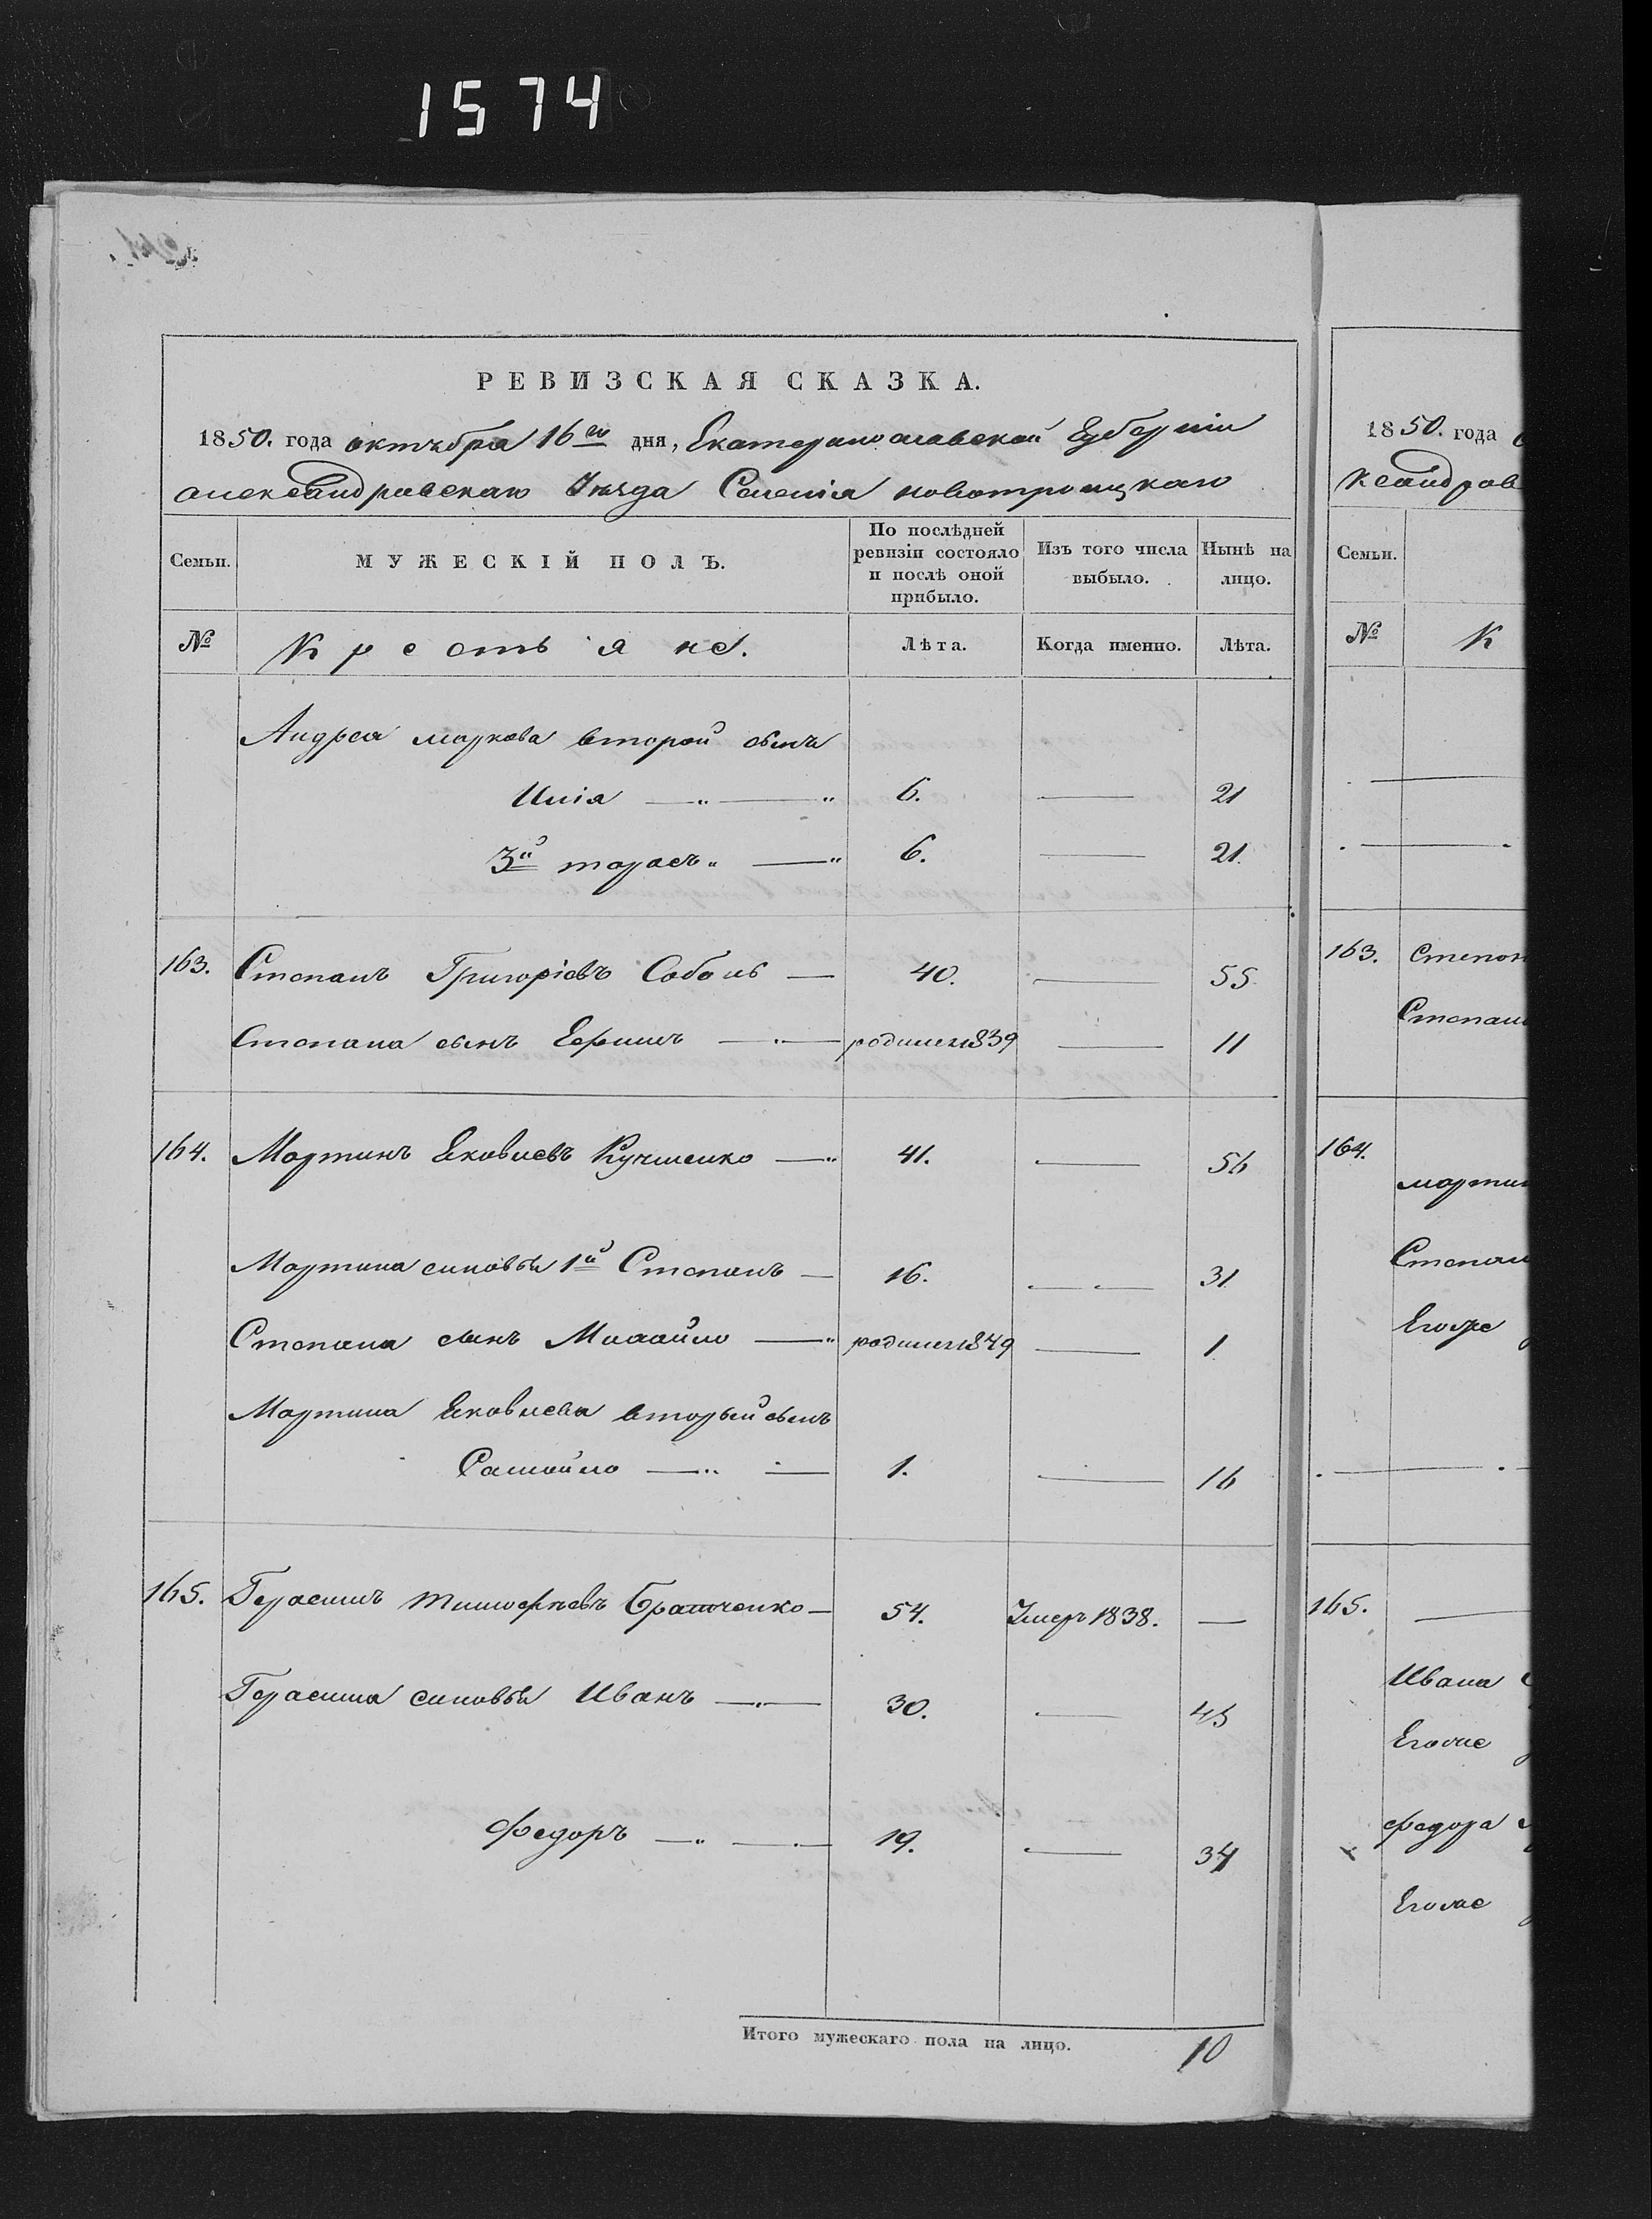 1574
РЕВИЗСКАЯ СКАЗКА.
1850. года октября 16го дня, Екатеринославской Губерніи
александровскаго Уѣзда Селенія новотроицкаго
Семьи.
МУЖЕСКІЙ ПОЛЪ.
По послѣдней ревизіи состояло и послѣ оной прибыло.
Изъ того числа выбыло.
Нынѣ на лицо.
№ Крестьяне. Лѣта. Когда именно. Лѣта.
Андрея маркова второй сынъ
Илія — „ — „ 6. — 21
3й тарасъ „ — „ 6. — 21
163. Степанъ Григоріевъ Соболь — 40. — 55
Степана сынъ Ефимъ — родился 1839 — 11
164. Мартинъ Яковлевъ Кучменко — „ 41. — 56
Мартина синовья 1й Степанъ — 16. — 31
Степана сынъ Михайло — „ родился 1849 — 1
Мартина Яковлева вторый сынъ
Самойло — „ — 1. — 16
165. Герасимъ Тимофѣевъ Братченко — 54. Умеръ 1838. —
Герасима синовья Иванъ — 30. — 45
Федоръ — „ — 19. — 34
Итого мужескаго пола на лицо. 10
1850. года
ксандров
Семьи.
№ К
163. Степан
Степан
164.
мартин
Степан
Его же
165. —
Ивана
Его же
Федора
Его же